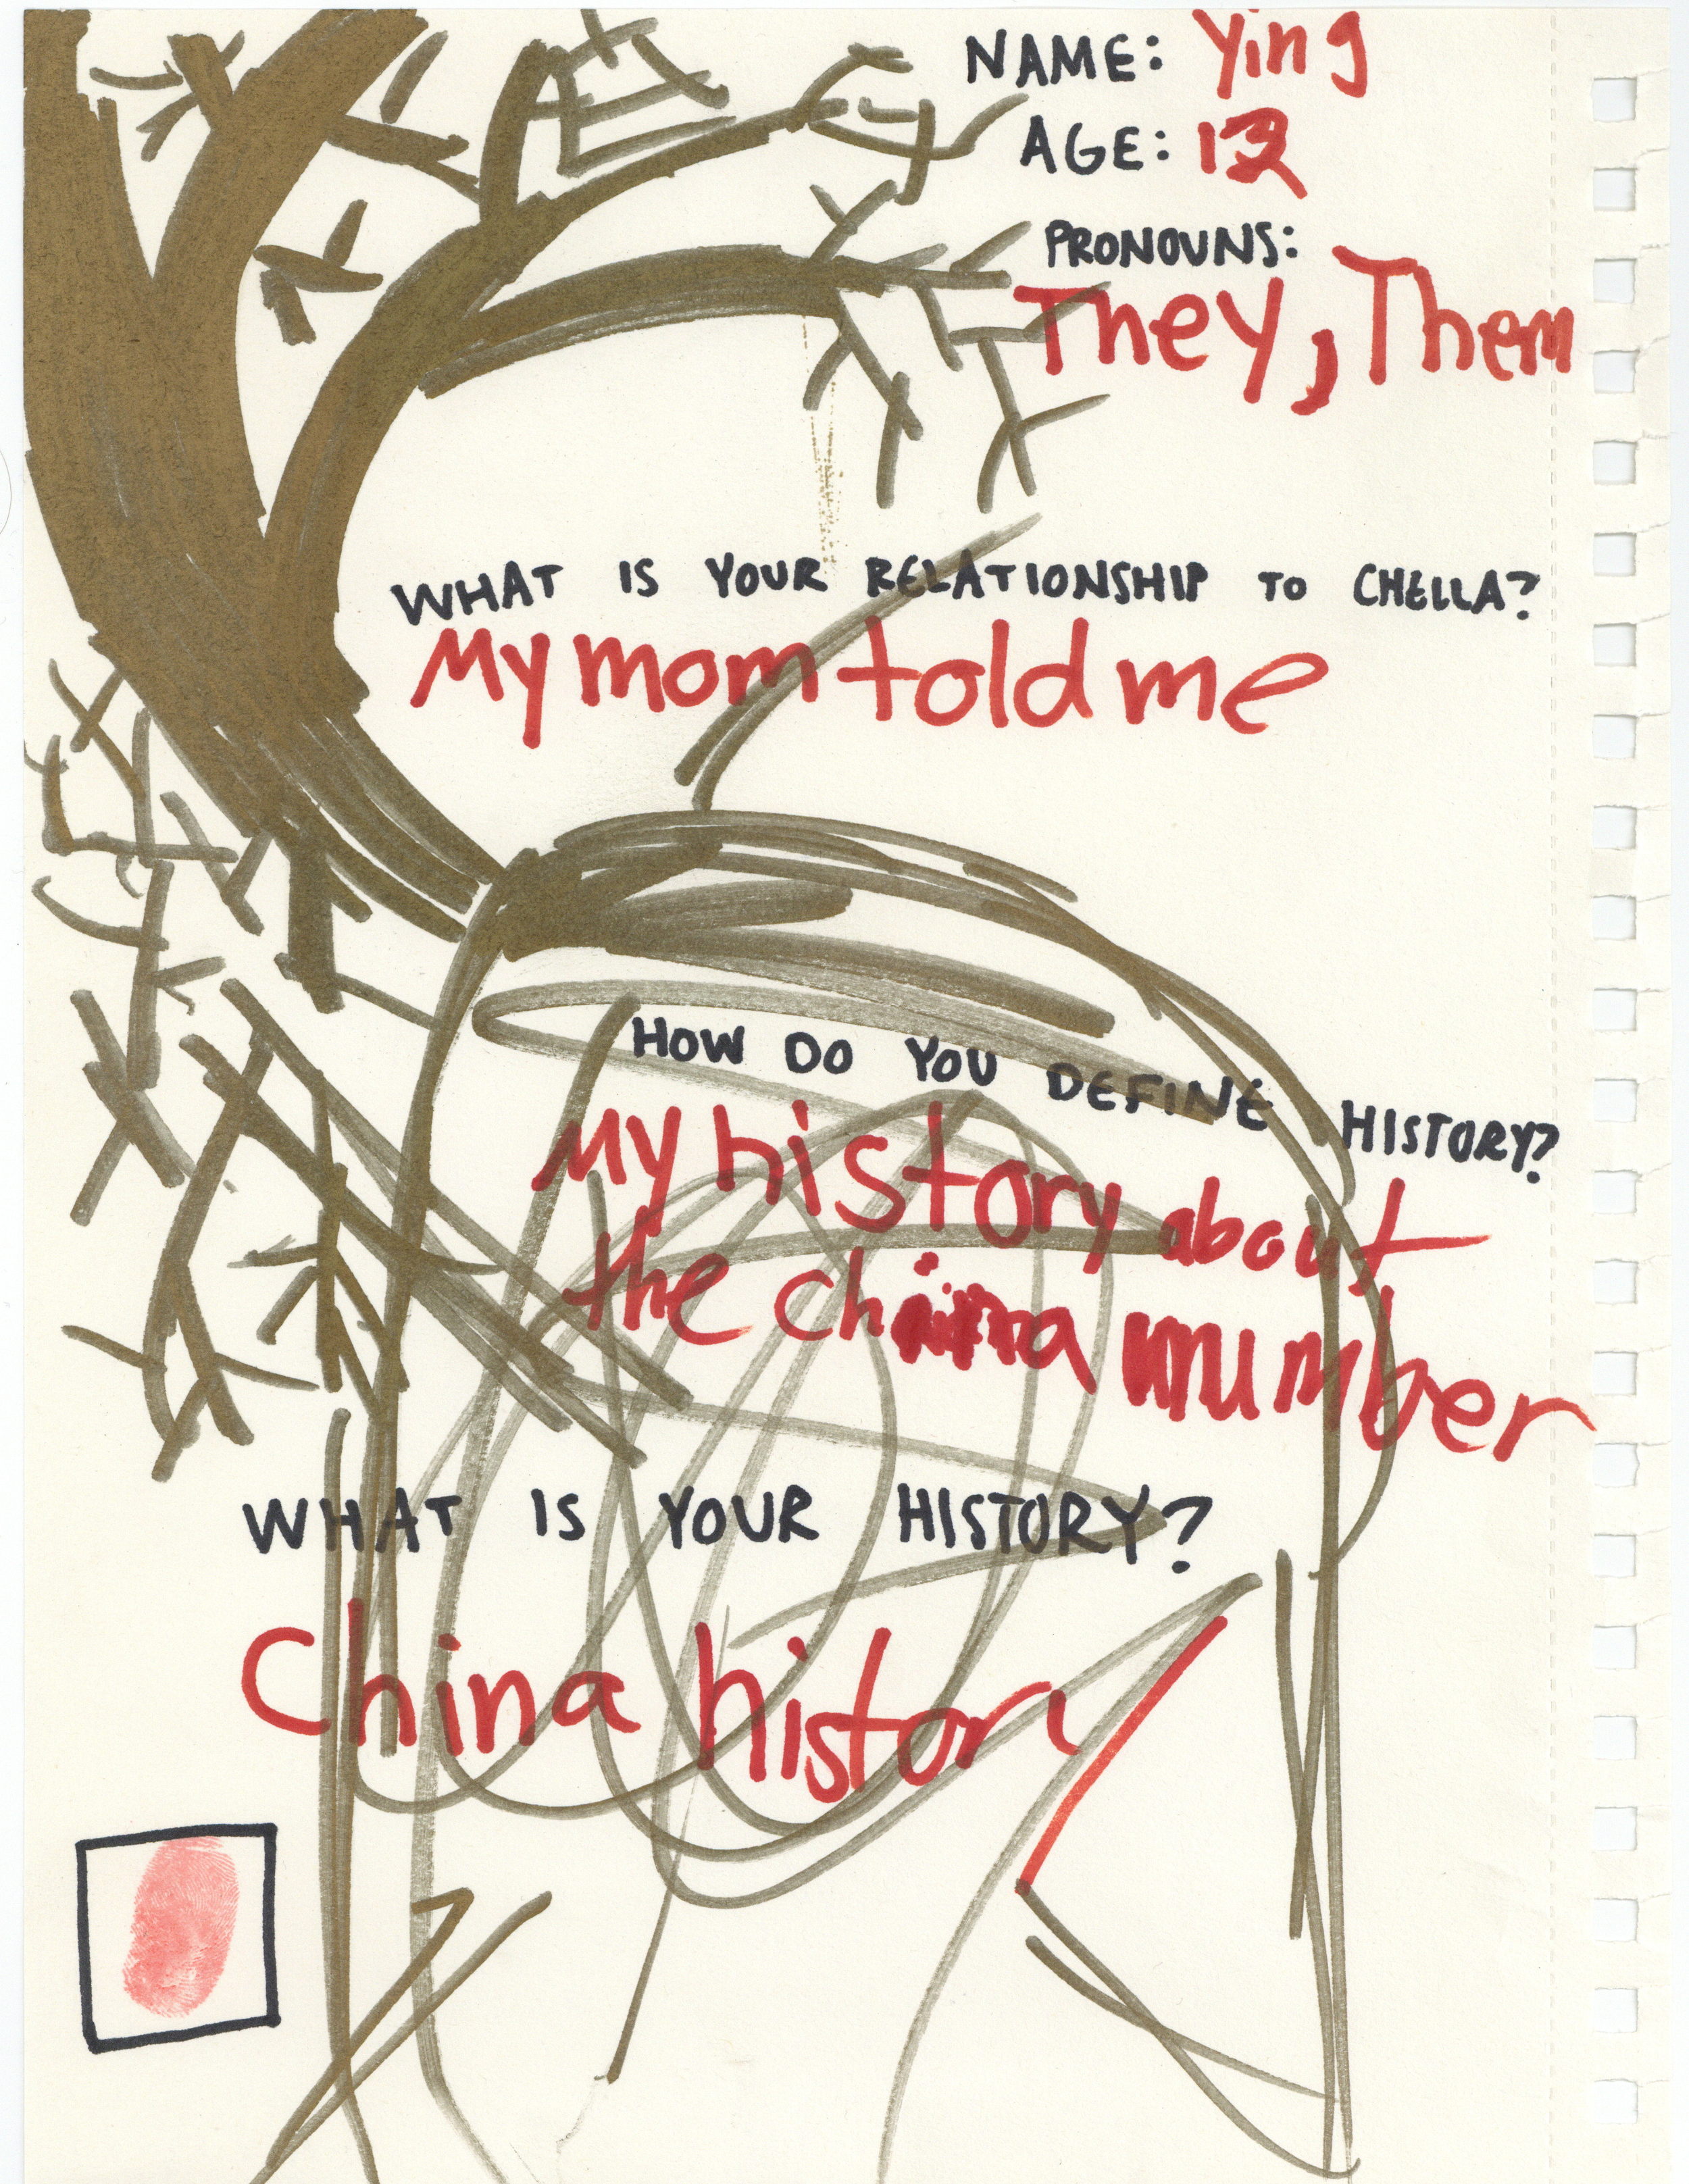 NAME: Ying
AGE: 12
PRONOUNS:
They, Them
WHAT IS YOUR RELATIONSHIP TO CHELLA?
My mom told me
HOW DO YOU DEFINE HISTORY?
My history about
the china number
WHAT IS YOUR HISTORY?
China history